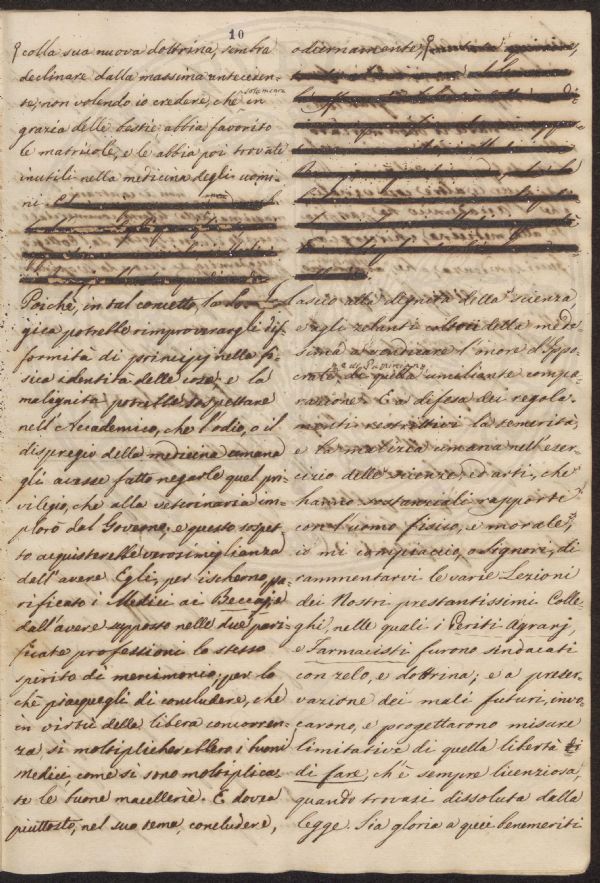 10
colla sua nuova dottrina, sembra
declinare dalla massima anteceden-
te, non volendo io credere, che solamente in
grazia delle bestie abbia favorito
le matricole, e le abbia poi trovate
inutili nella medicina degli uomi-
ni
Poichè, in tal concetto, la Lo-
gica potrebbe rimproverargli dif-
formità di principj nella fi-
sica identità delle cose, e la
malignità potrebbe sospettare
nell'Accademico, che l'odio, o il
dispregio della medicina umana
gli avesse fatto negarle quel pri-
vilegio, che alla veterinaria im-
plorò dal Governo, e questo sospet-
to acquisterebbe verosimiglianza
dell'avere Egli, per ischerno, pa-
rificato i Medici ai Beccaj, e
dall'avere supposto nelle due pari-
ficate professioni lo stesso
spirito di
chè piacquegli di concludere, che
in virtù della libera concorren-
za si moltiplicherebbero i buoni
Medici, come si sono moltiplica-
te le buone macellerie. E dovea
piuttosto, nel suo tema, concludere,
odiernamente,
Lascio alla dignità della scienza,
e agli zelanti cultori della mede-
sima a vendicare l'onore d'Ippo-
crate da quella umiliante compa-
razione. E a difesa dei regola-
menti restrittivi la temerità,
e la malizia umana nell'eser-
cizio delle scienze, ed arti, che
hanno sostanziali rapporti
con l'uomo fisico, e morale,
io mi compiaccio, o Signori, di
rammentarvi le varie Lezioni
dei Nostri prestantissimi Colle-
ghi, nelle quali i Periti Agrarj,
e Farmacisti furono sindacati
con zelo, e dottrina, e a preser-
vazione dei mali futuri, invo-
carono, e progettarono misure
limitative di quella libertà
di fare, ch'è sempre licenziosa,
quando trovasi dissoluta dalla
legge. Sia gloria a quei benemeriti